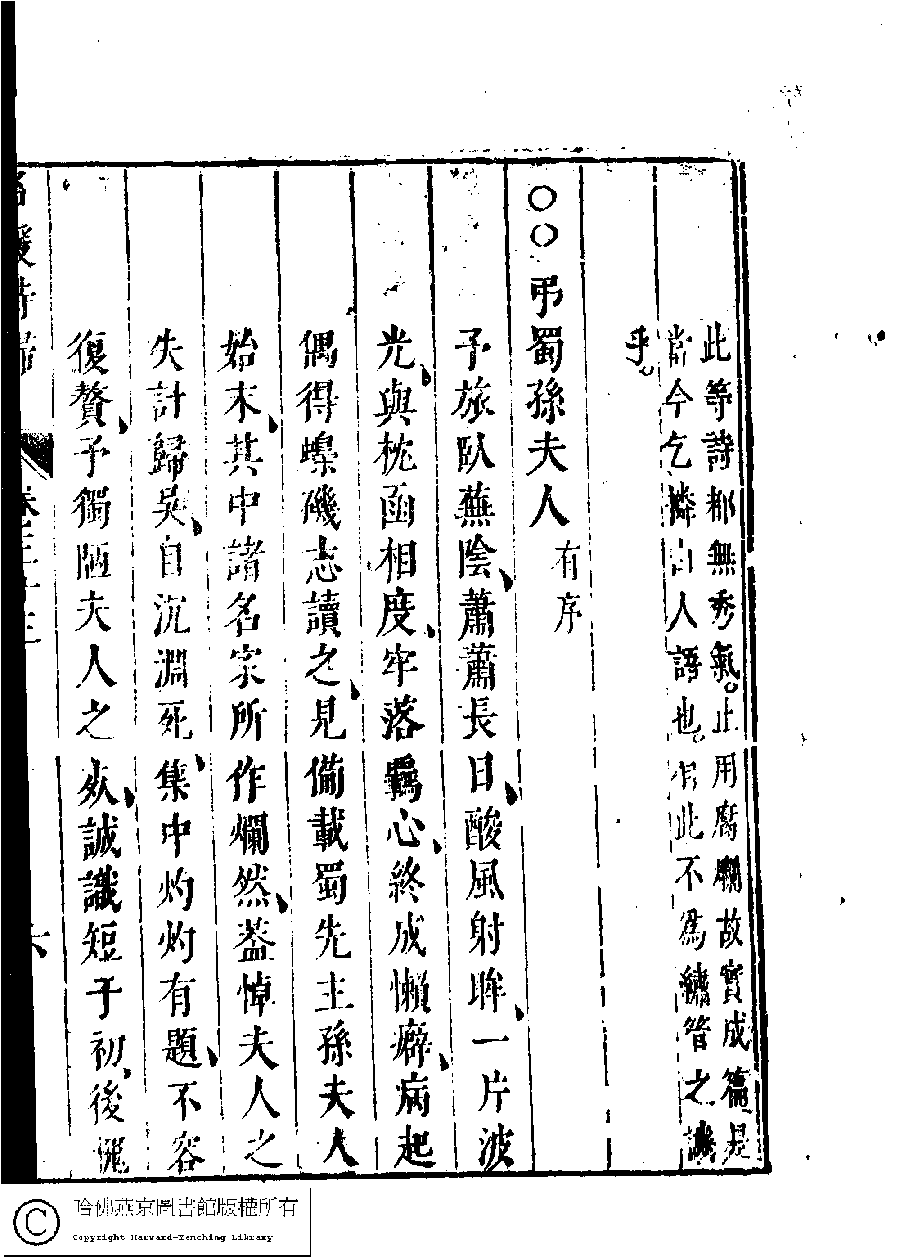 此等詩都無秀氣止用腐爛故實成篇是
當今乞憐白人語也作此不爲繡管之譏
乎
○○弔蜀孫夫人有序
予旅臥蕪陰蕭蕭長日酸風射眸一片波
光與枕函相度牢落羈心終成懶癖病起
偶得蟂磯志讀之見備載蜀先主孫夫人
始末其中諸名家所作爛然蓋悼夫人之
失計歸吳自沉淵死集中灼灼有題不容
復贅予獨陋夫人之 誠識短于初後
名媛詩歸 卷三十三 六
哈佛燕京圖書館版權所有
Copyright Harvard-Yenching Library